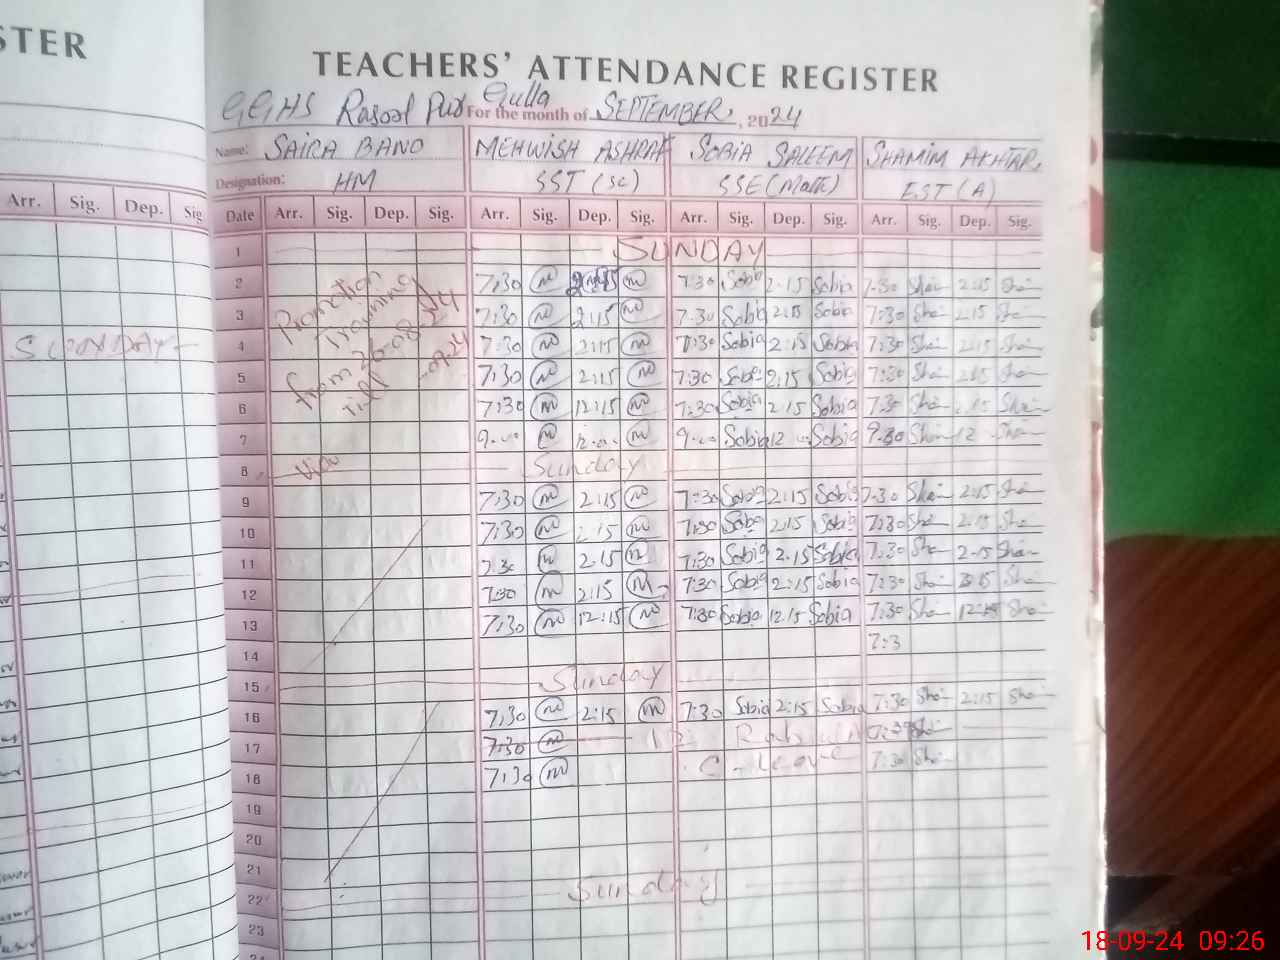 STER
TEACHERS' ATTENDANCE REGISTER
GGHS Rasool Pur Gulla For the month of SEPTEMBER, 2024
Name: SAIRA BANO MEHWISH ASHRAF SOBIA SALEEM SHAMIM AKHTAR
Designation: HM SST (sc) SSE (Math) EST (A)
Arr. Sig. Dep. Sig
Date Arr. Sig. Dep. Sig. Arr. Sig. Dep. Sig. Arr. Sig. Dep. Sig. Arr. Sig. Dep. Sig.
1 SUNDAY
2 7:30 m 2:15 m 7:30 Sobia 2:15 Sobia 7:30 Sha 2:15 Sha
Promotion
3 7:30 m 2:15 m 7:30 Sobia 2:15 Sobia 7:30 Sha 2:15 Sha
Training
SUNDAY
4 7:30 m 2:15 m 7:30 Sobia 2:15 Sobia 7:30 Sha 2:15 Sha
from 26-08-24
5 7:30 m 2:15 m 7:30 Sobia 2:15 Sobia 7:30 Sha 2:15 Sha
till -09-24
6 7:30 m 12:15 m 7:30 Sobia 2:15 Sobia 7:30 Sha 2:15 Sha
7 9:00 m 12:00 m 9:00 Sobia 12 Sobia 9:30 Sha 12 Sha
8 Sunday
9 7:30 m 2:15 m 7:30 Sobia 2:15 Sobia 7:30 Sha 2:15 Sha
10 7:30 m 2:15 m 7:30 Sobia 2:15 Sobia 7:30 Sha 2:15 Sha
11 7:30 m 2:15 m 7:30 Sobia 2:15 Sobia 7:30 Sha 2:15 Sha
12 7:30 m 2:15 m 7:30 Sobia 2:15 Sobia 7:30 Sha 2:15 Sha
13 7:30 m 12:15 m 7:30 Sobia 12:15 Sobia 7:30 Sha 12:15 Sha
14 7:3
15 Sunday
16 7:30 m 2:15 m 7:30 Sobia 2:15 Sobia 7:30 Sha 2:15 Sha
17 7:30 m 12 7:30 Sha
18 7:30 m C-leave 7:30 Sha
19
20
21
22 Sunday
23
18-09-24 09:26